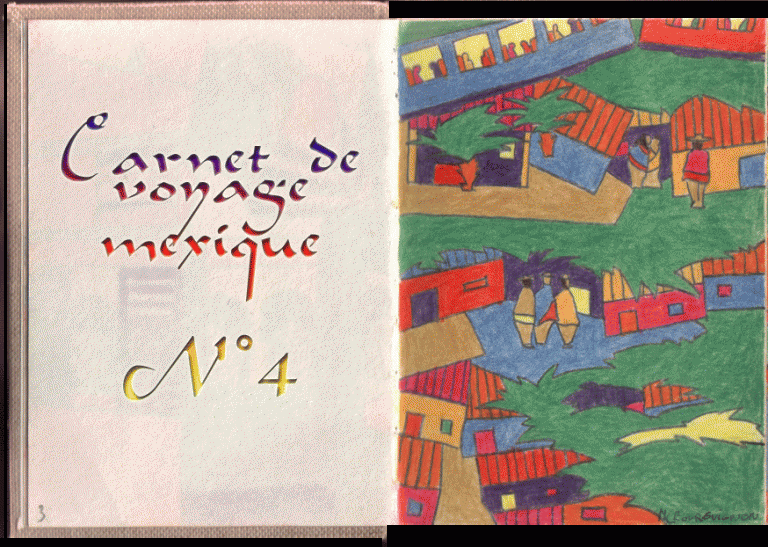 Carnet de
voyage
mexique
N° 4
3